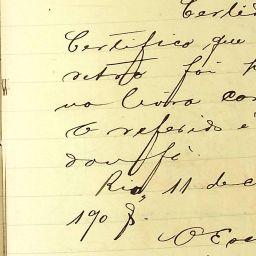 Certid
Certifico que
retro foi p
no livro com
O referido é
dou fé.
Rio, 11 de
190
O Esc